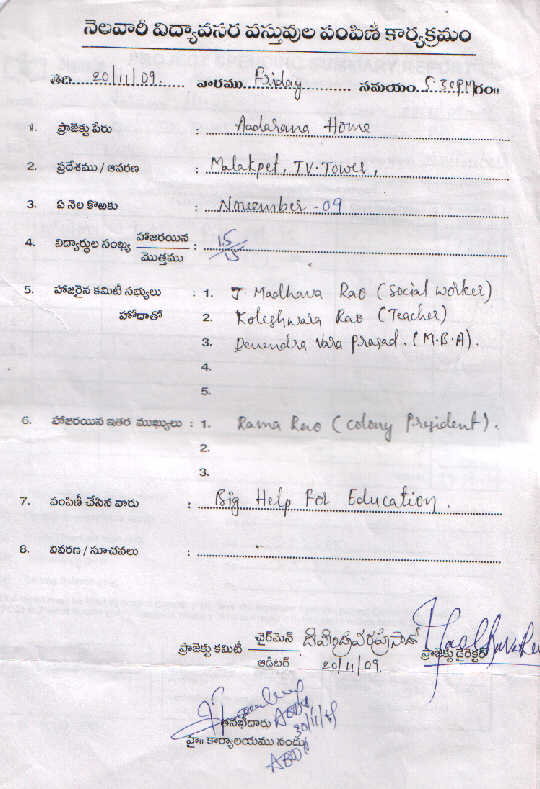 నెలవారీ విద్యావసర వస్తువుల పంపిణీ కార్యక్రమం
తేది. 20/11/09. వారము. Friday సమయం. 5.30PM గం॥
1. ప్రాజెక్టు పేరు : Aadarana Home
2. ప్రదేశము / ఆవరణ : Malakpet, T.V. Tower,
3. ఏ నెల కొఱకు : November - 09
4. విద్యార్థుల సంఖ్య హాజరయిన / మొత్తము : 15/15
5. హాజరైన కమిటీ సభ్యులు : 1. J Madhava Rao (Social worker)
హోదాతో 2. Koleshwara Rao (Teacher)
3. Devendra Vara prasad. (M.B.A).
4.
5.
6. హాజరయిన ఇతర ముఖ్యులు : 1. Rama Rao (colony president).
2.
3.
7. పంపిణీ చేసిన వారు : Big Help For Education.
8. వివరణ / సూచనలు :
ప్రాజెక్టు కమిటీ చైర్‌మెన్ / ఆడిటర్ దేవేంద్రవరప్రసాద్ ప్రాజెక్టు డైరెక్టర్
20/11/09.
తనిఖీదారు
హై॥ కార్యాలయము నందు